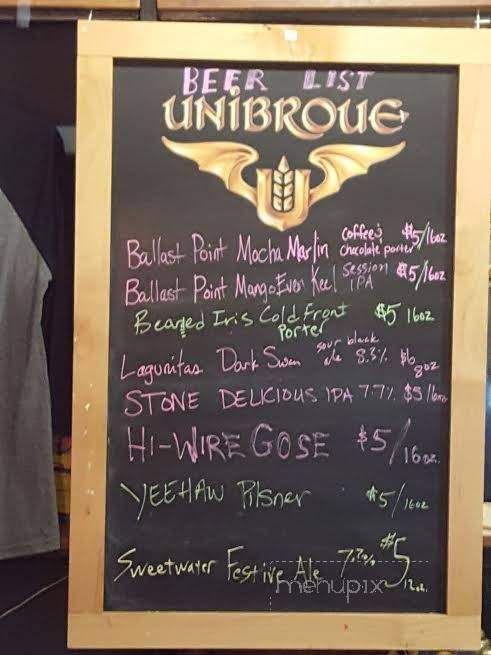 BEER LIST
UNIBROUE
U
Ballast Point Mocha Marlin coffee & chocolate porter $5/16oz
Ballast Point Mango Even Keel Session IPA $5/16oz
Bearded Iris Cold Front Porter $5 16oz
Lagunitas Dark Swan sour black ale 8.3% $6 8oz
STONE DELICIOUS IPA 7.7% $5/16oz
HI-WIRE GOSE $5/16oz.
YEEHAW Pilsner $5/16oz
Sweetwater Festive Ale 7.2% $5 12oz.
menupix